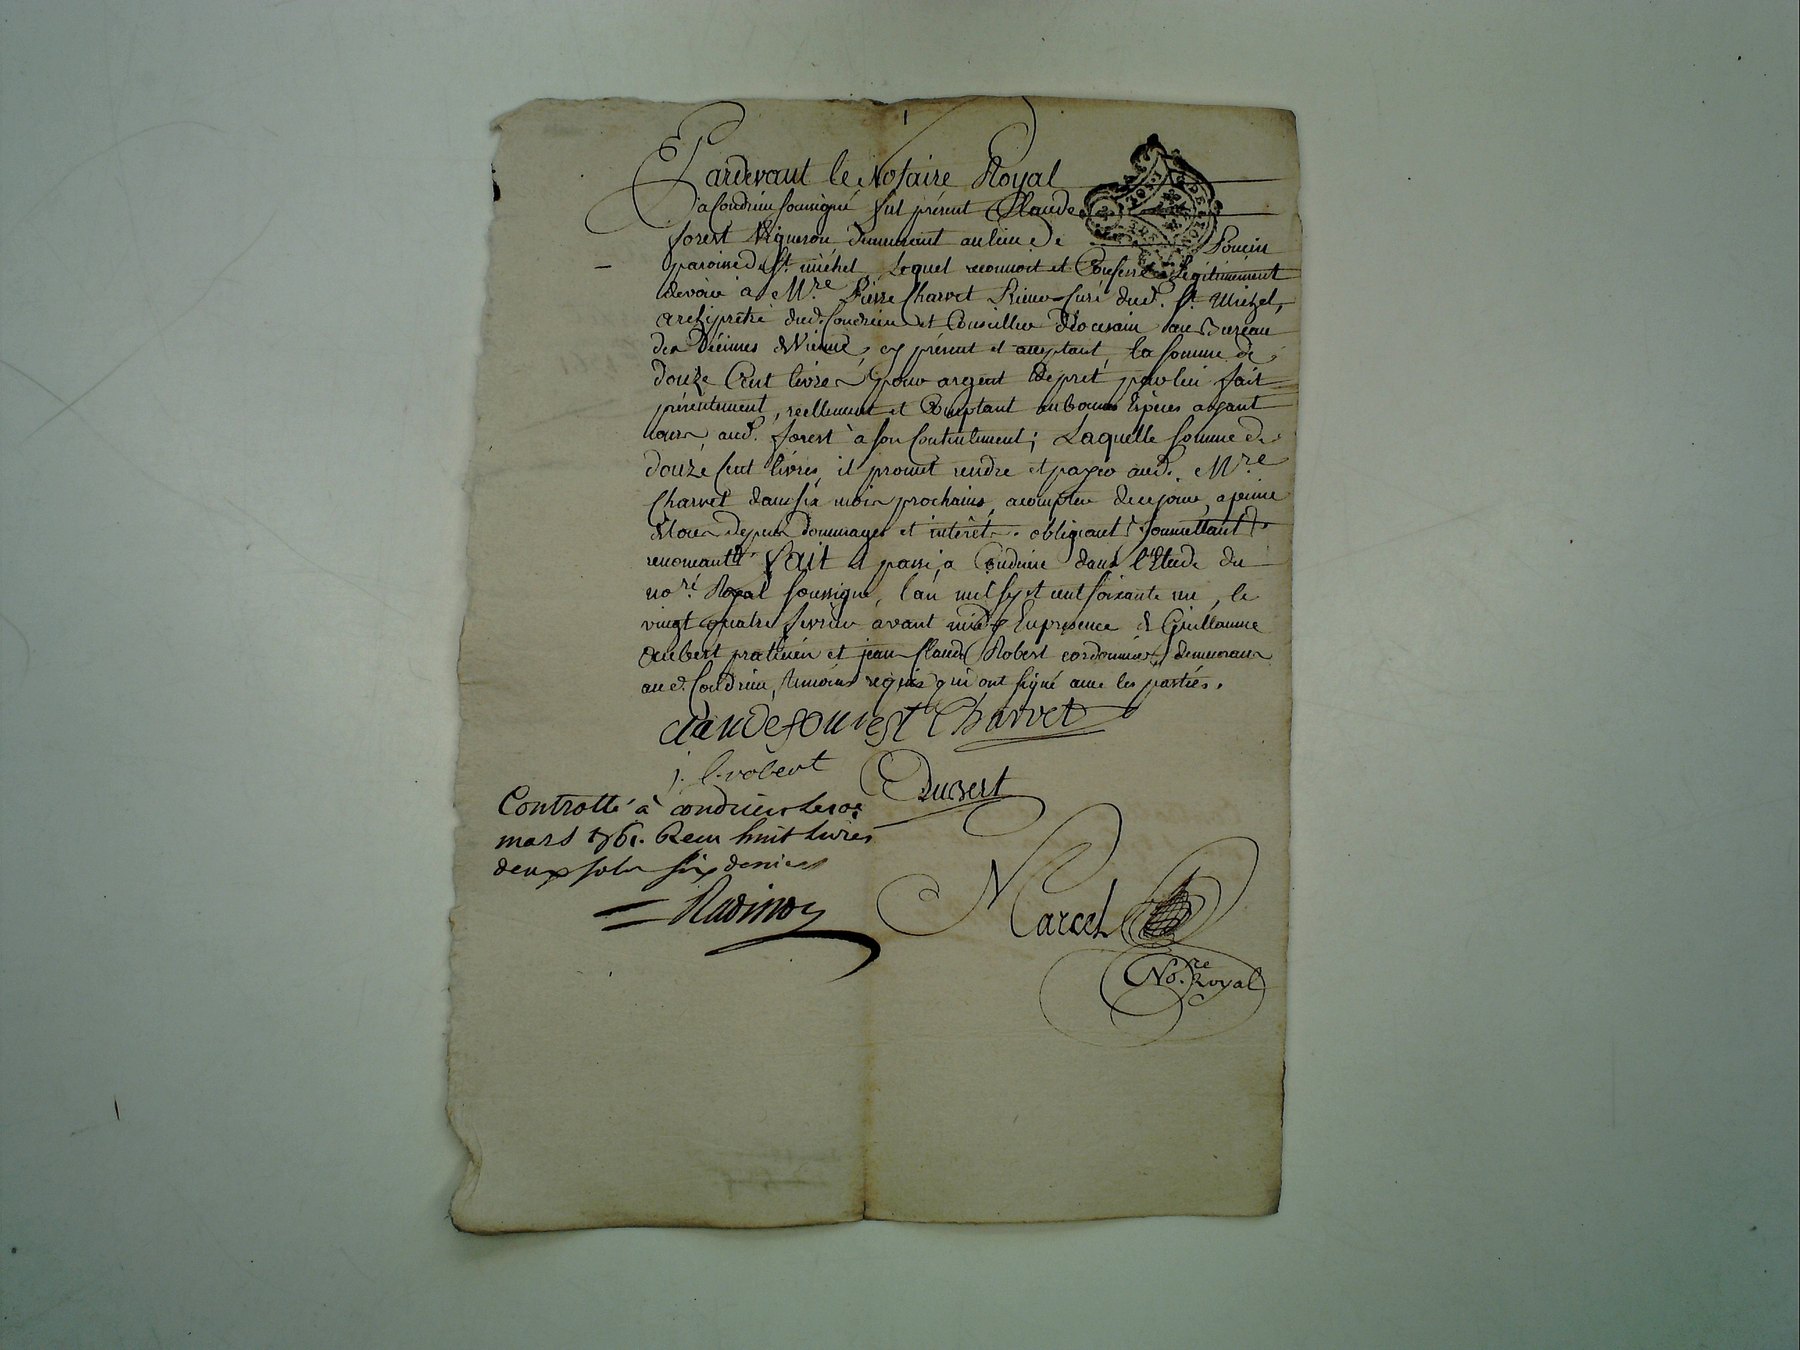 Pardevant le Notaire Royal
a Condrieu soussigné fut présent Claude
forest Vigneron demeurant au lieu de Poncin
paroisse de St. michel, Lequel reconnoit et Confesse légitimement
devoir à Mre. Pierre Charvet Prieur-Curé dud. St. Michel,
archiprêtre dud. Condrieu et Conseiller Diocesain au Bureau
des Décimes de Vienne, cy présent et acceptant, la somme de
douze Cent livres pour argent de prêt par lui fait
présentement, réellement et Comptant en bonnes Espèces ayant
cours, aud. forest à son Contentement; Laquelle somme de
douze Cent livres, il promet rendre et payer aud. Mre
Charvet dans six mois prochains, a compter de ce jour, a peine
de tous depens dommages et intérêts. obligeant soumettant
renonceant Fait et passé, a Condrieu dans l'Etude du
nore. Royal soussigné, l'an mil sept cent soixante un, le
vingt quatre fevrier avant midy En presence de Guillaume
Dubert praticien et jean Claude Robert cordonnier, demeurans
aud. Condrieu, témoins requis qui ont signé avec les parties.
claude fourest Charvet
j. C. robert
Dubert
Controllé à condrieu le
mars 1761. Reçu huit livres
deux sols six deniers
Marcel
Nore. Royal